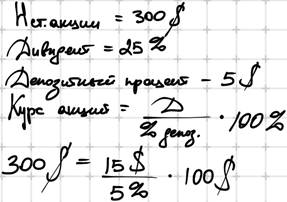 Нст. акции = 300 $
Дивидент = 25 %
Депозитный процент - 5 $
Курс акций = Д / % депоз. · 100 %
300 $ = 15 $ / 5 % · 100 $